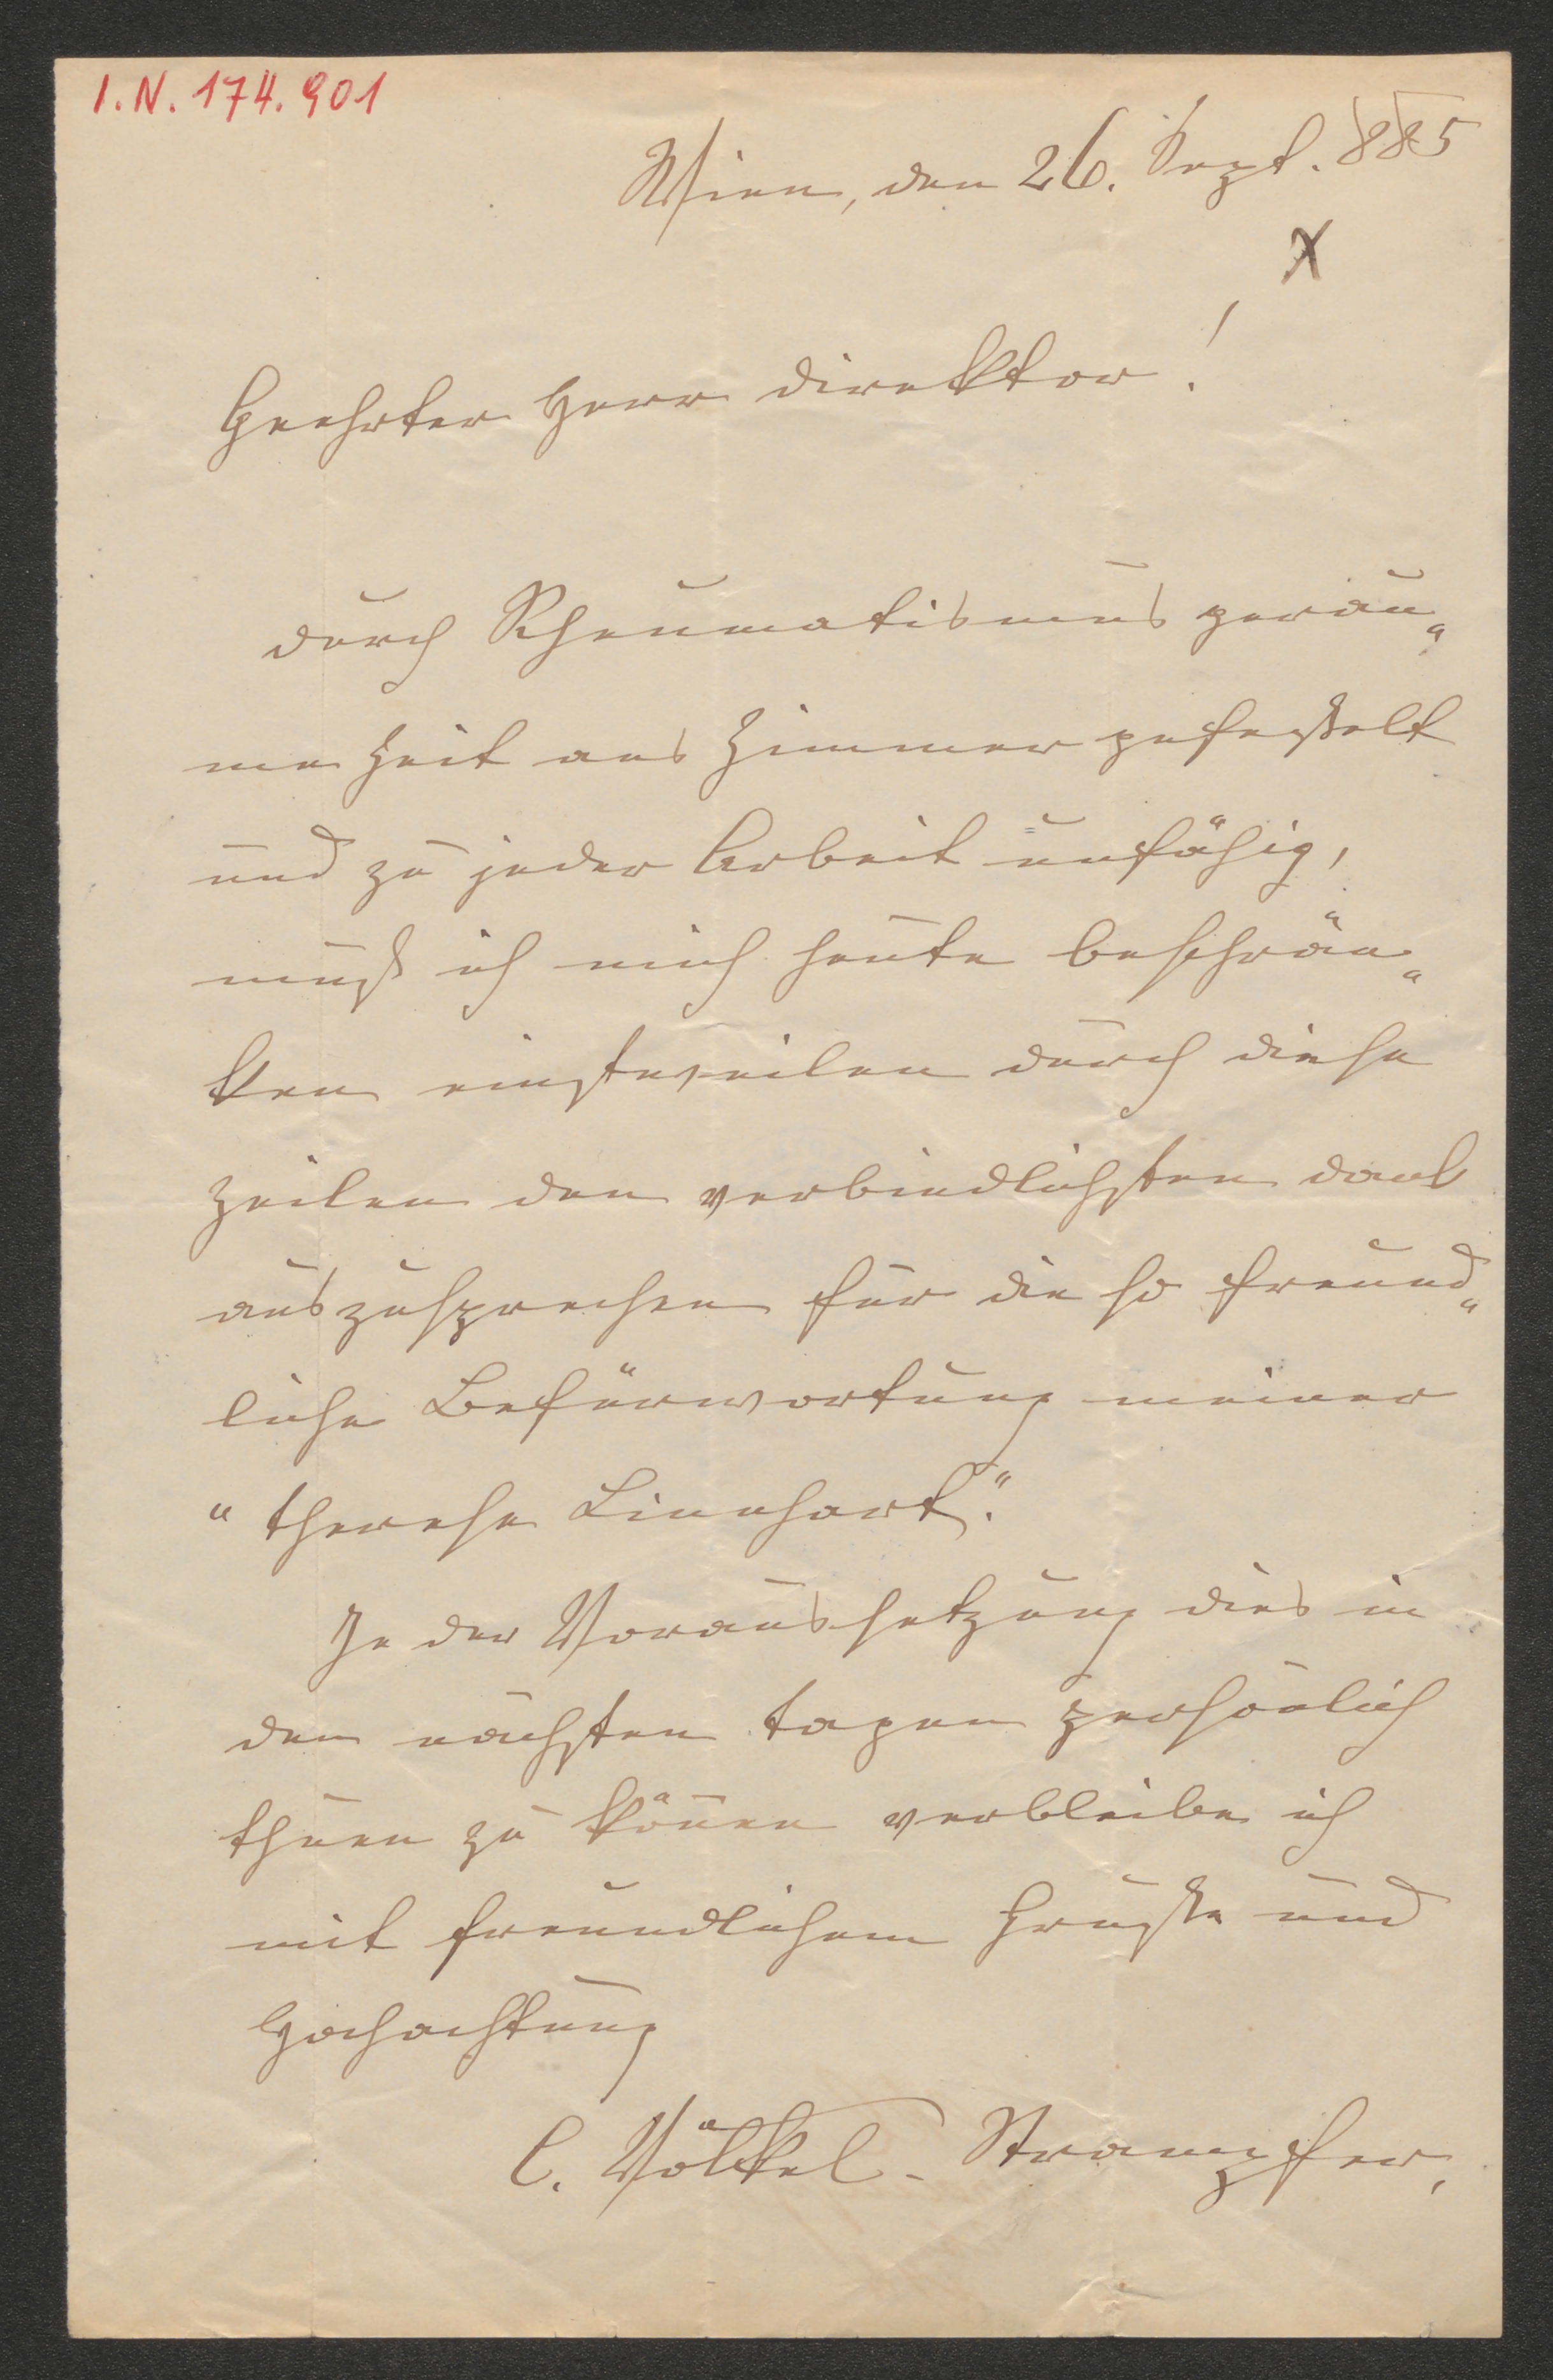 I.N. 174.901
Wien, den 26. Sept. 885
X
Geehrter Herr Direktor!
Durch Rheumatismus gerau„
me Zeit ans Zimmer gefesselt
und zu jeder Arbeit unfähig,
muß ich mich heute beschrän„
ken einstweilen durch diese
Zeilen den verbindlichsten Dank
auszusprechen für die so freund„
liche Befürwortung meiner
"Therese Linnhart."
In der Voraussetzung dies in
den nächsten Tagen persönlich
thuen zu können verbleibe ich
mit freundlichem Gruße und
Hochachtung
C. Völkel-Strampfer.